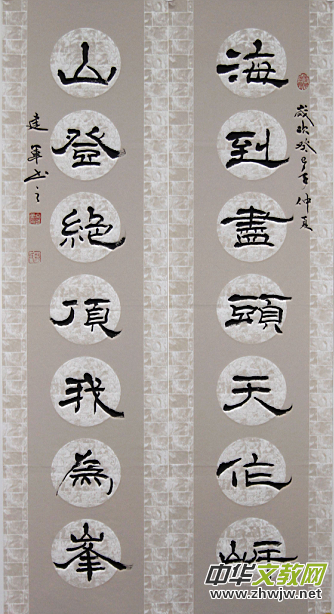 海到盡頭天作岸
歲次癸巳年仲夏
山登絶頂我為峯
建軍书之
中华文教网
www.zhwjw.net